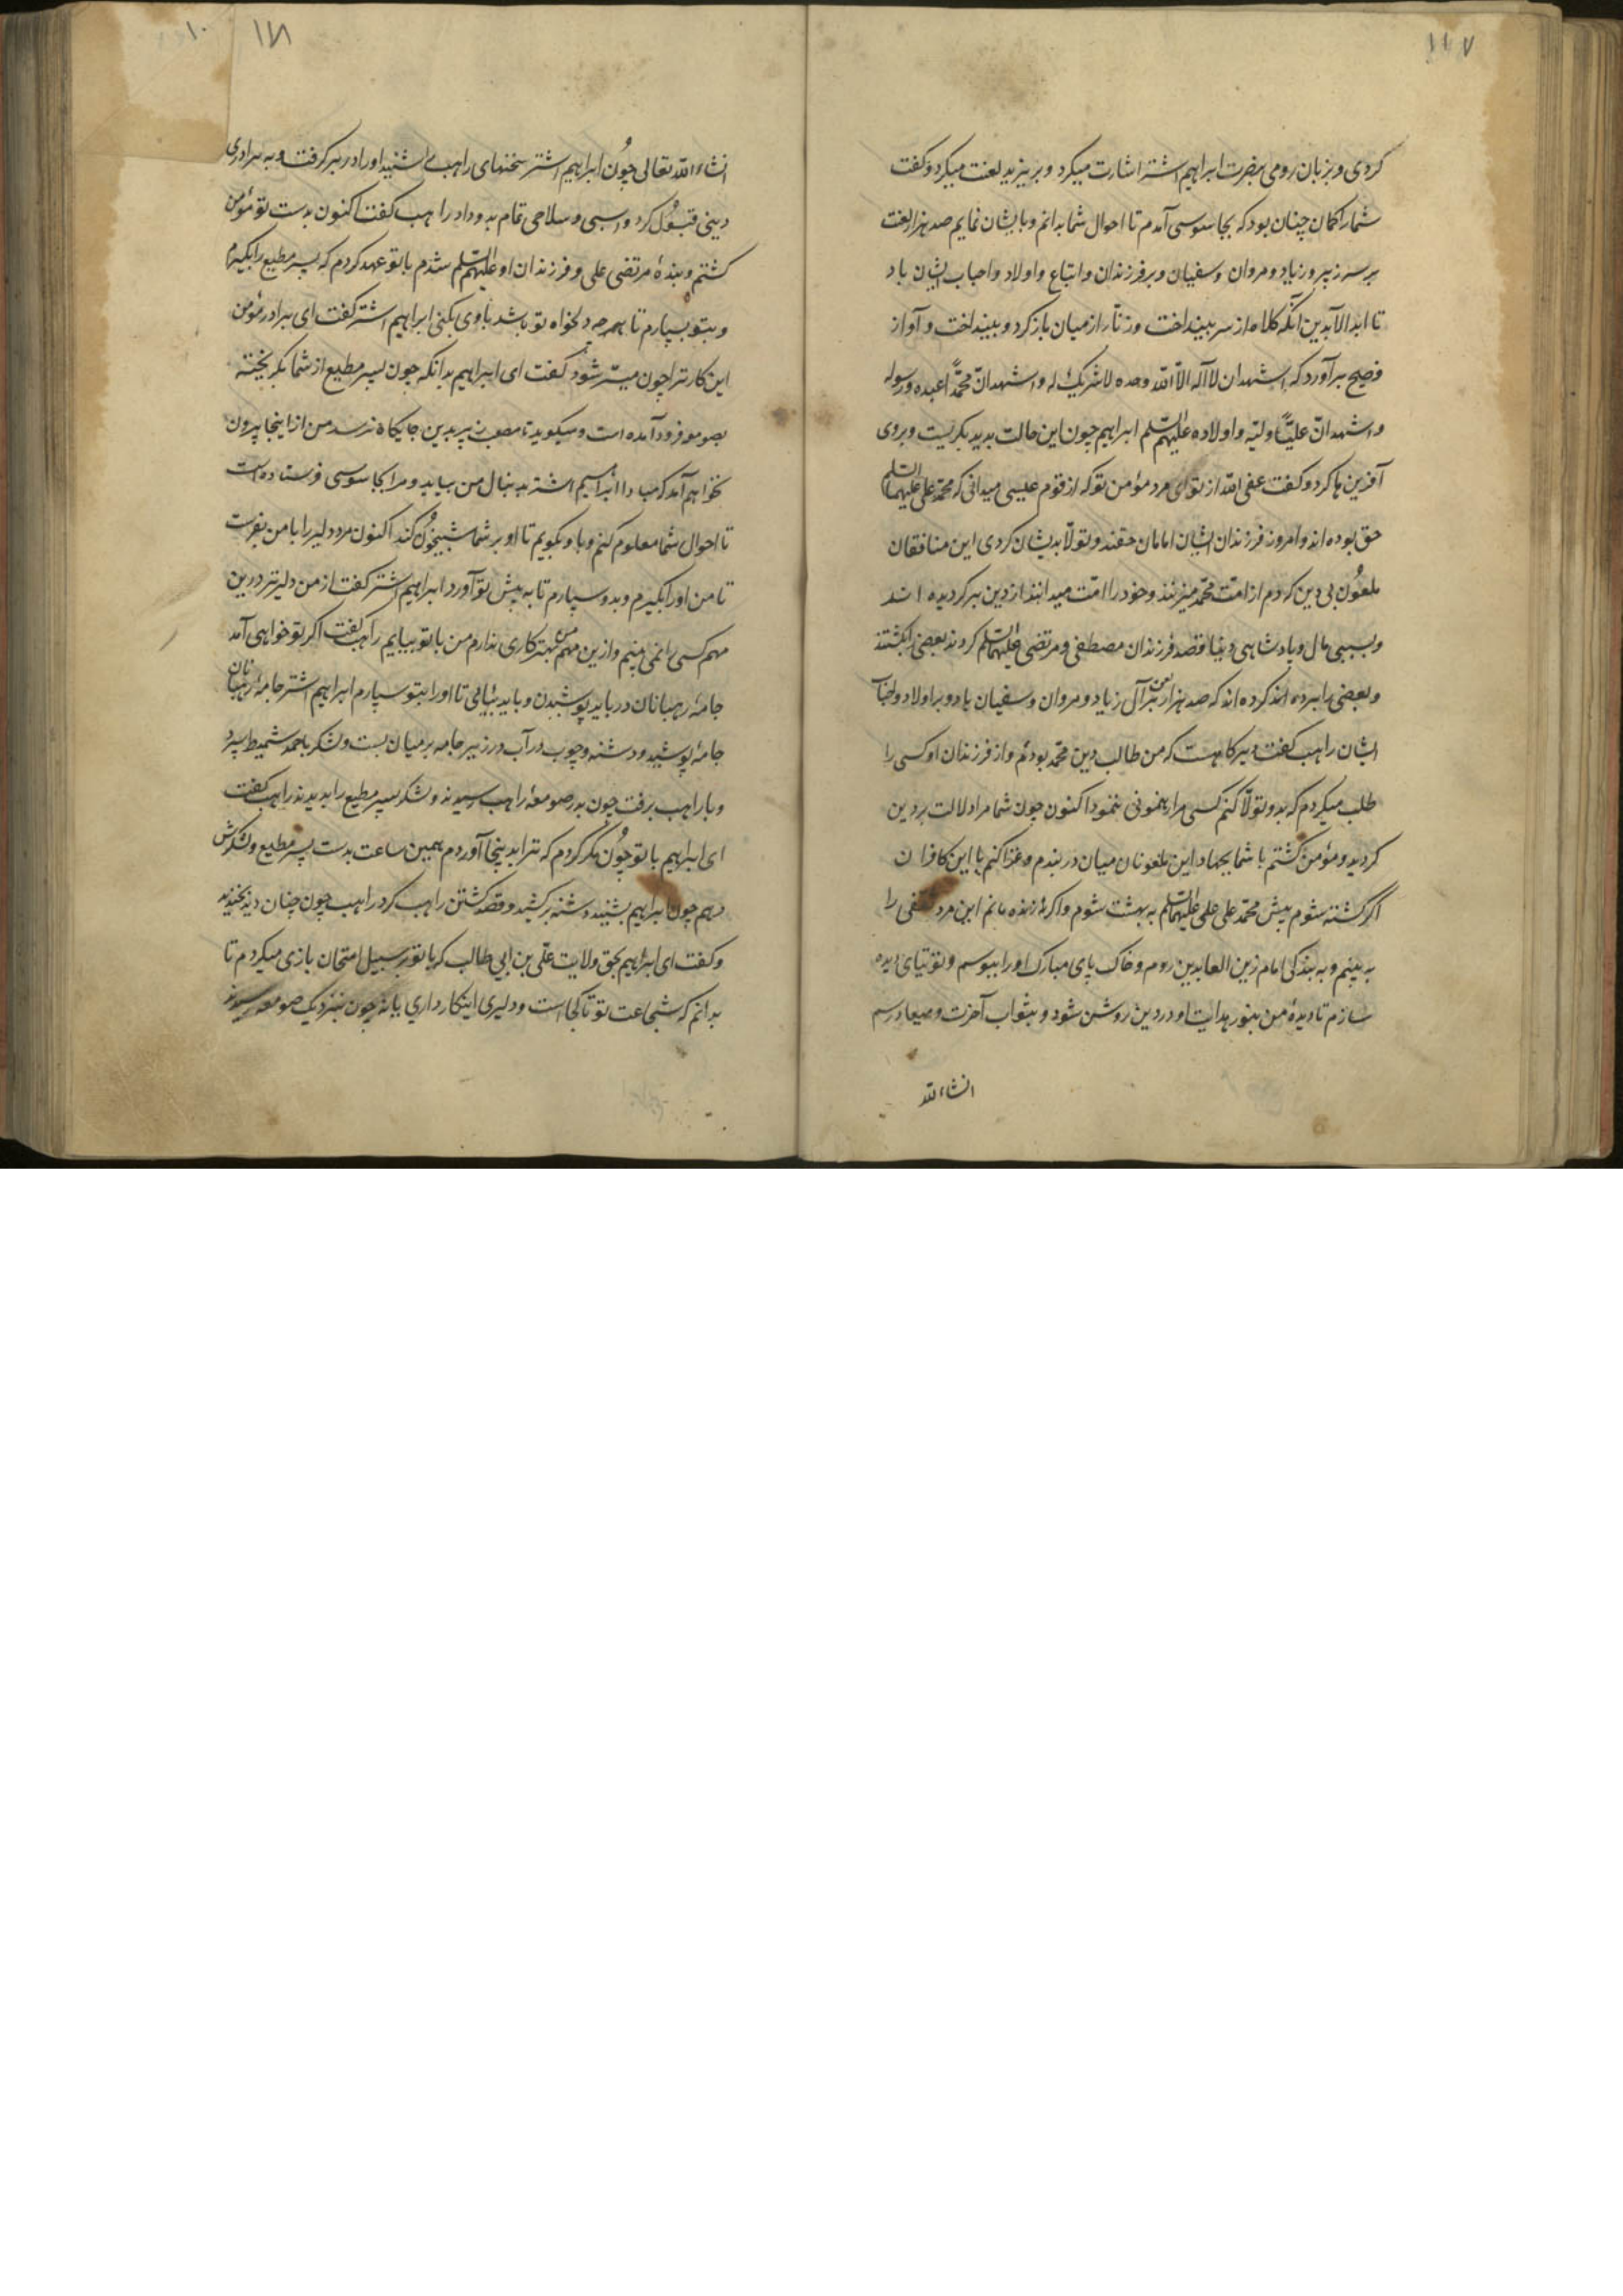 ۱۱۷
کردی و بزبان رومی بحضرت ابراهیم اشتر اشارت میکرد و بر یزید لعنت میکرد و کفت
شما را کمان چنان بود که بجاسوسی آمدم تا احوال شما بدانم و بایشان نمایم صد هزار لعنت
بر سر زبیر و زیاد و مروان و سفیان و بر فرزندان و اتباع و اولاد و احباب ایشان باد
تا ابد الآبدین آنکه کلاه از سر بینداخت و زنّار از میان باز کرد و بینداخت و آواز
فصیح برآورد که اشهد ان لا اله الّا الله وحده لا شریک له و اشهد انّ محمّداً عبده و رسوله
و اشهد انّ علیّاً ولیّه و اولاده علیهم السلم ابراهیم چون این حالت بدید بکریست و بروی
آفرین ها کرد و کفت عفی الله از تو ای مرد مؤمن تو که از قوم عیسی میدانی که محمد علی علیهما السلم
حق بوده اند و امروز فرزندان ایشان امامان حقند و تولّا بدیشان کردی این منافقان
ملعُون بی دین که دم از امّت محمّد میزنند و خود را امت میدانند از دین برکردیده اند
و بسببی مال و پادشاهی دنیا قصد فرزندان مصطفی و مرتضی علیهما السلم کردند بعضی را بکشتند
و بعضی را برده اند کرده اند که صد هزار لعن بر آل زیاد و مروان و سفیان باد و بر اولاد و
ایشان راهب کفت دیرکاهست که من طالب دین محمّد بودم و از فرزندان او کسی را
طلب میکردم که بدو تولّا کنم کسی مرا رهنمونی ننمود اکنون چون شما مرا دلالت بر دین
کردید و مؤمن کشتم با شما بجهاد این ملعونان میان در بندم و غزا کنم با این کافران
اکر کشته شوم پیش محمّد علی علی علیهما السلم به بهشت شوم و اکر زنده بانم این مرد ثقفی را
به بینم و به بندکی امام زین العابدین روم و خاک پای مبارک او را ببوسم و توتیای دیده
سازم تا دیدهٔ من بنور هدایت او در دین روشن شود و بثواب آخرت و میعاد رسم
انشاءلله
۱۱۸
انشاءالله تعالی چُون ابراهیم اشتر سخنهای راهب بشنید او را در بر کرفت و به برادری
دینی قبُول کرد و اسبی و سلاحی تمام بدو داد راهب کفت اکنون بدست تو مؤمن
کشتم و بندهٔ مرتضی علی و فرزندان او علیهم السلم شدم با تو عهد کردم که پسر مطیع را بکیرم
و بتو بسپارم تا بهرچه دلخواه تو باشد با وی بکنی ابراهیم اشتر کفت ای برادر مؤمن
این کار ترا چون میسّر شود کفت ای ابراهیم بدانکه چون پسر مطیع از شما بکریخته
بصومعه فرود آمده است و میکوید تا مصعب زبیر بدین جایکاه نرسد من از اینجا بیرون
نخواهم آمد که مبادا ابراهیم اشتر بدنبال من بیاید و مرا بجاسوسی فرستاده است
تا احوال شما معلوم کنم و با او بکویم تا او بر شما شبیخُون کند اکنون مرد دلیر را با من بفرست
تا من او را بکیرم و بدو سپارم تا به پیش تو آورد ابراهیم اشتر کفت از من دلیرتر درین
مهم کسی را نمی بینم و ازین مهم من بهتر کاری ندارم من با تو بیایم راهب کفت اکر تو خواهی آمد
جامهٔ رهبانان در باید پوشیدن و باید بیائی تا او را بتو سپارم ابراهیم اشتر جامهٔ رهبانان
جامه پوشید و دشنه و چوب در آب در زیر جامه بر میان بست و لشکر باحمد شمیط سپرد
و با راهب برفت چون بدر صومعهٔ راهب رسیدند و لشکر پسر مطیع را بدیدند راهب کفت
ای ابراهیم با تو چُون مکر کردم که ترا بدینجا آوردم همین ساعت بدست پسر مطیع و لشکرش
دهم چون ابراهیم بشنید دشنه بر کشید و قصد کشتن راهب کرد راهب چون چنان دید بخندید
و کفت ای ابراهیم بحق ولایت علّی بن ابی طالب که با تو بر سبیل امتحان بازی میکردم تا
بدانم که شجاعت تو تا کجا است و دلیری اینکار داری یا نه چون بنزدیک صومعه رسیدند